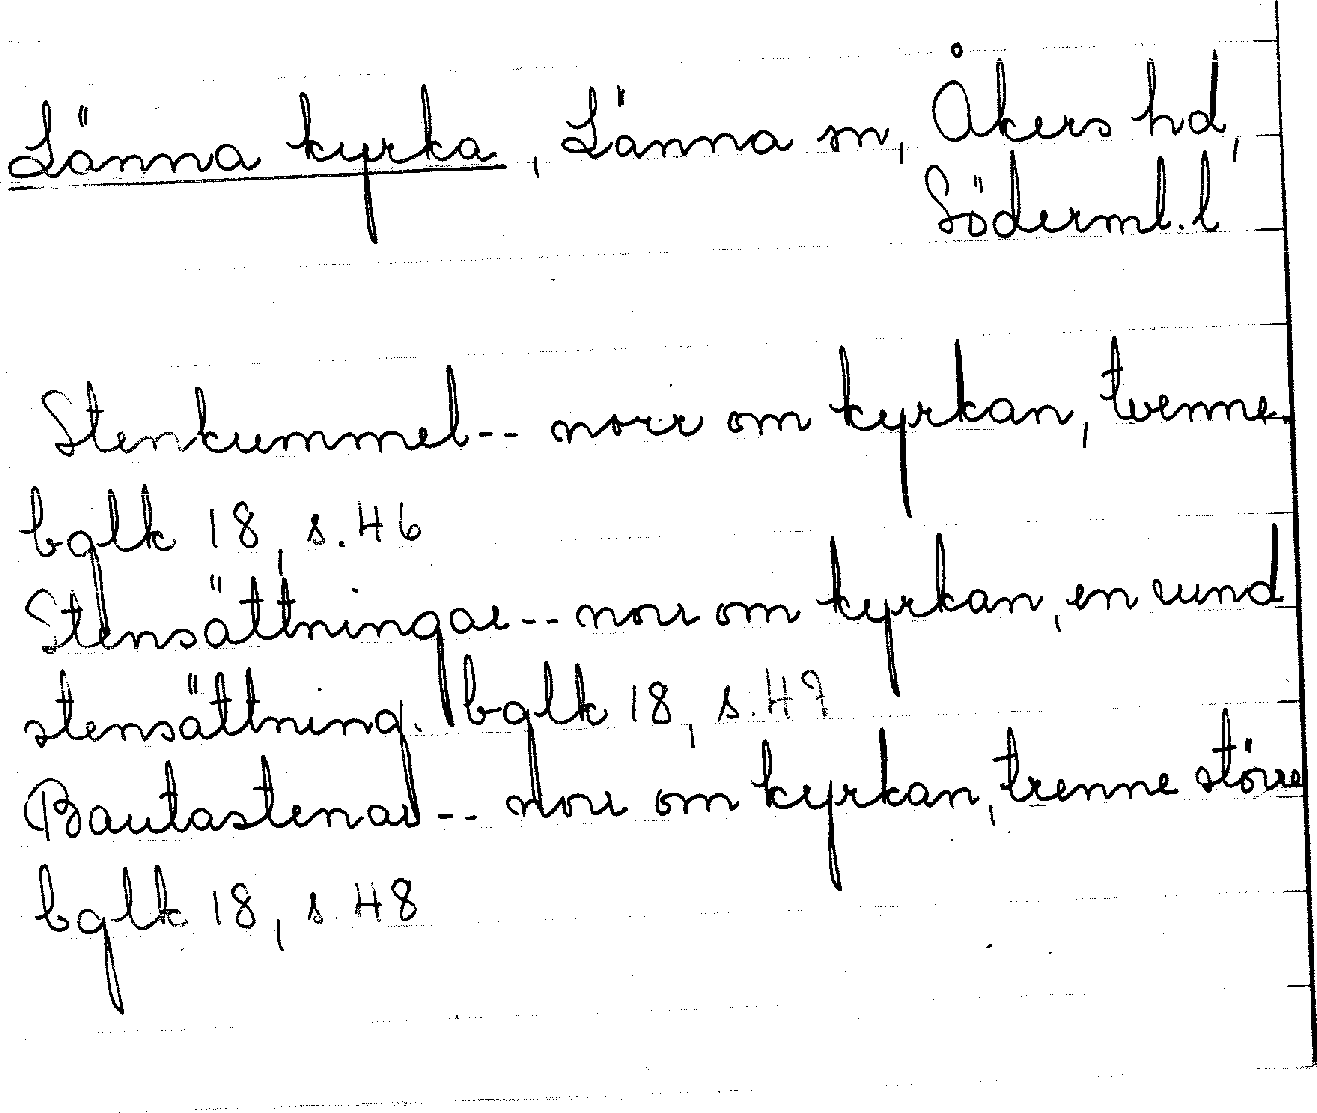 Länna kyrka, Länna sn, Åkers hd,
Söderml. l
Stenkummel-- norr om kyrkan, tvenne
bglk 18, s. 46
Stensättningar-- norr om kyrkan, en rund
stensättning. bglk 18, s. 47
Bautastenar-- norr om kyrkan, trenne större
bglk 18, s. 48